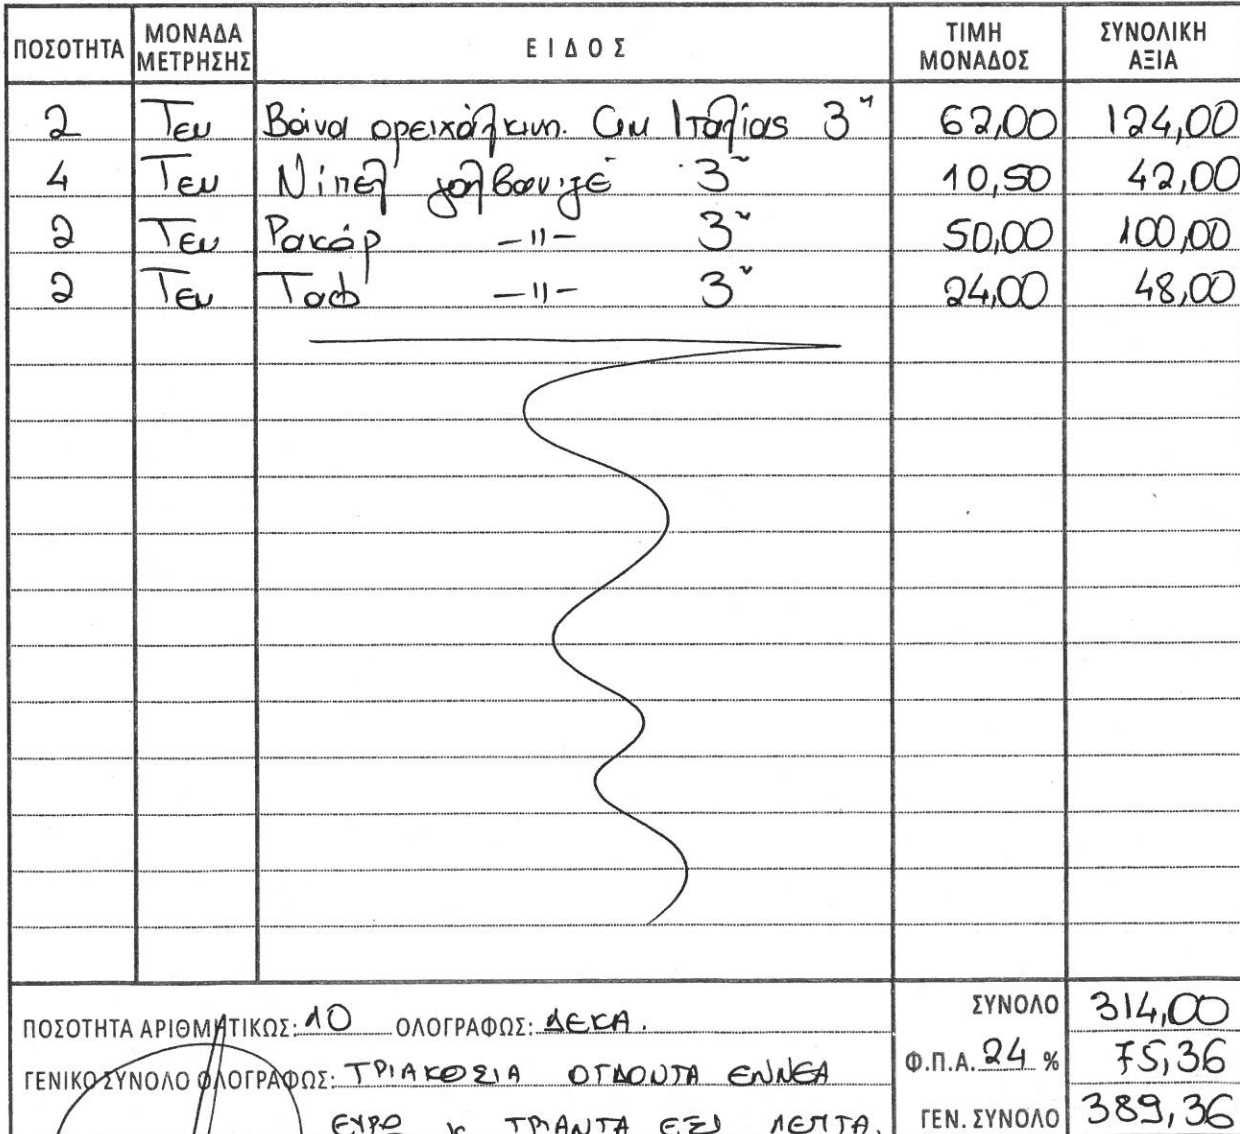 ΠΟΣΟΤΗΤΑ ΜΟΝΑΔΑ ΜΕΤΡΗΣΗΣ ΕΙΔΟΣ ΤΙΜΗ ΜΟΝΑΔΟΣ ΣΥΝΟΛΙΚΗ ΑΞΙΑ
2 Τεμ Βάνα ορειχάλκινη Cim Ιταλίας 3" 62,00 124,00
4 Τεμ Νίπελ γαλβανιζέ 3" 10,50 42,00
2 Τεμ Ρακόρ -"- 3" 50,00 100,00
2 Τεμ Ταφ -"- 3" 24,00 48,00
ΠΟΣΟΤΗΤΑ ΑΡΙΘΜΗΤΙΚΩΣ: 10 ΟΛΟΓΡΑΦΩΣ: ΔΕΚΑ. ΣΥΝΟΛΟ 314,00
ΓΕΝΙΚΟ ΣΥΝΟΛΟ ΟΛΟΓΡΑΦΩΣ: ΤΡΙΑΚΟΣΙΑ ΟΓΔΟΝΤΑ ΕΝΝΕΑ Φ.Π.Α. 24 % 75,36
ΕΥΡΩ κ ΤΡΙΑΝΤΑ ΕΞΙ ΛΕΠΤΑ. ΓΕΝ. ΣΥΝΟΛΟ 389,36